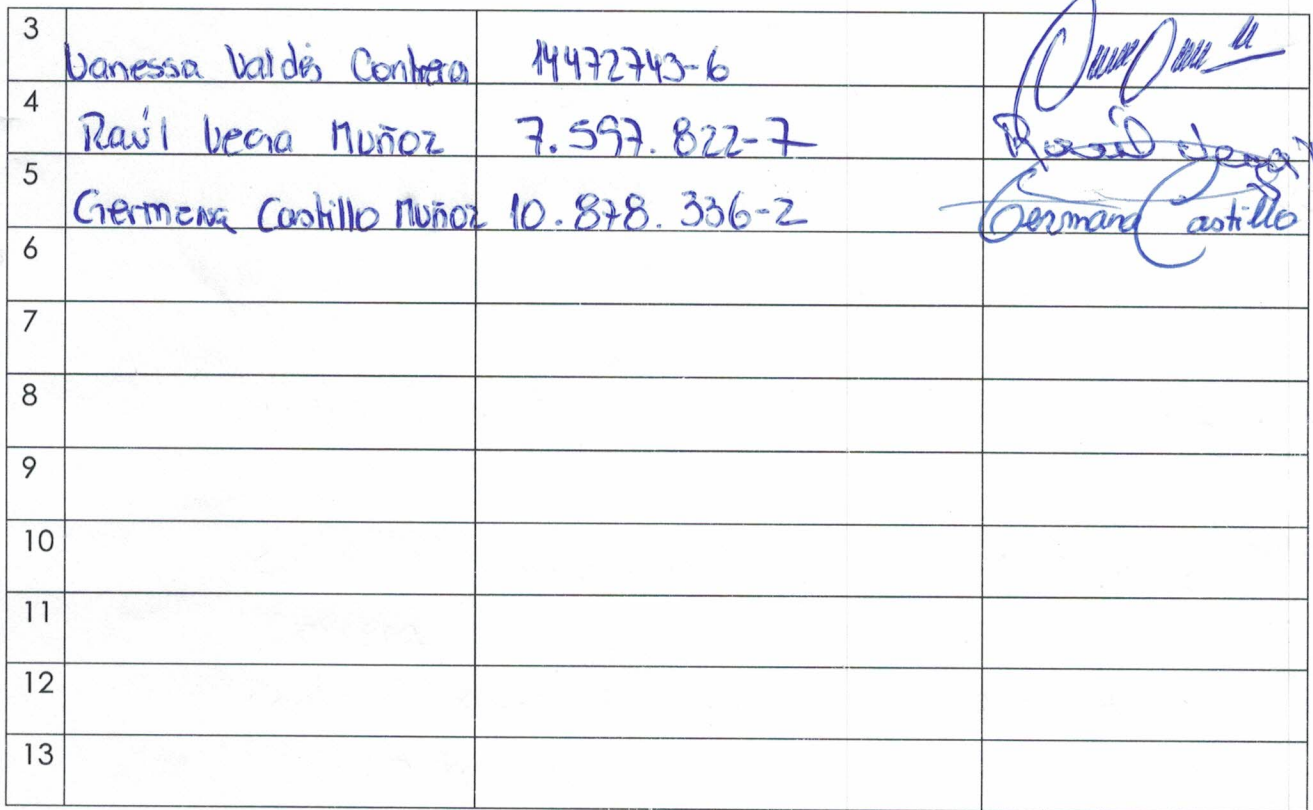 3 Vanessa Valdés Contreras 14472743-6
4 Raúl Vega Muñoz 7.597.822-7 Raúl Vega
5 Germana Castillo Muñoz 10.878.336-2 Germana Castillo
6
7
8
9
10
11
12
13